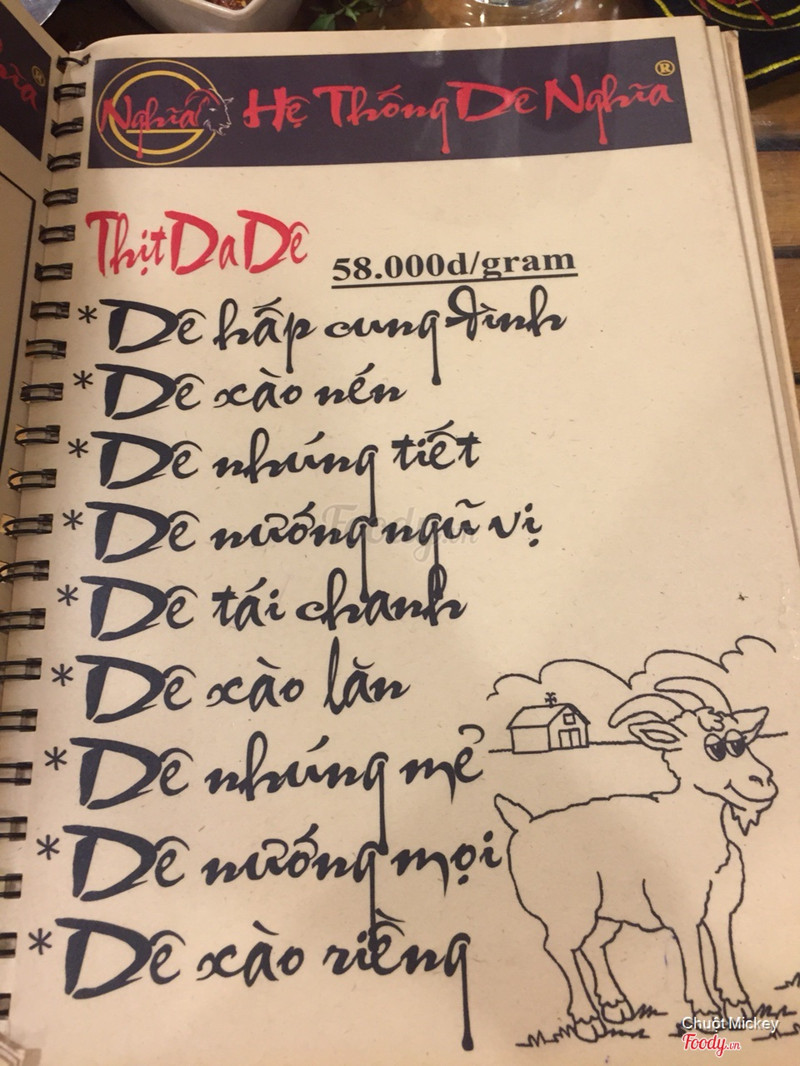 Nghĩa Hệ Thống Dê Nghĩa ®
Thịt Da Dê 58.000d/gram
* Dê hấp cung đình
* Dê xào nén
* Dê nhúng tiết
* Dê nướng ngũ vị
* Dê tái chanh
* Dê xào lăn
* Dê nhúng mẻ
* Dê nướng mọi
* Dê xào riềng
Foody.vn
Chuột Mickey
Foody.vn